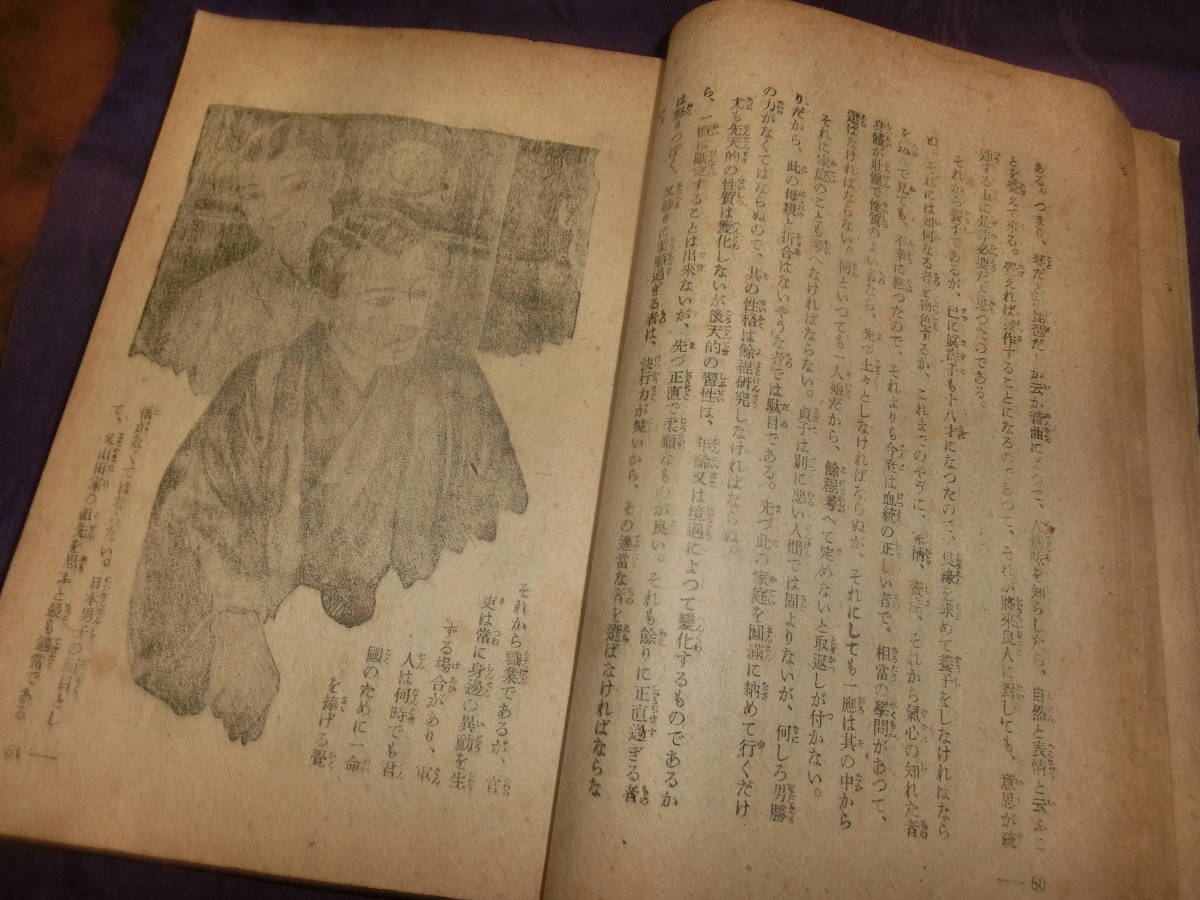 ある。つまり、琴だとか謡曲だとか云ふ音曲によつて、人情味を知らしたなら、自然と表情と云ふこ
とを覚えて来る。覚えれば動作することになるのであつて、それが将来良人に対しても、意思が疏
通する上に是非必要だと思つたのである。
それから養子であるが、已に眞養子も十八才になつたので、良縁を求めて養子をしなければなら
ぬ。それには如何なる者を物色するか、これまでのやうに、家柄、資産、それから氣心の知れた者
を で見ても、不幸に終つたので、それよりも今度は血統の正しい者で、相當の學問があつて、
身體が壯健で性質のよい者なら、先づ上々としなければならぬが、それにしても一應は其の中から
選ばなければならない。何といつても一人娘だから、餘程考へて定めないと取返しが付かない。
それに家庭のことも考へなければならない。貞子は別に惡い人間では固よりないが、何しろ男勝
りだから、此の母親と折合はないやうな者では駄目である。先づ此の家庭を圓滿に納めて行くだけ
の力がなくてはならぬので、其の性格は餘程研究しなければならぬ。
尤も先天的の性質は變化しないが後天的の習性は、年齡又は境遇によつて變化するものであるか
ら、一概に斷定することは出來ないが、先づ正直で柔順なものが良い。それも餘りに正直過ぎる者
は怒りつぽく、又餘りに柔順過ぎる者は、決行力が鈍いから、その適當な者を選ばなければならな
60
それから職業であるが、官
吏は常に身邊の異動を生
ずる場合があり、軍
人は何時でも君
國のために一命
を捧げる覺
悟がなくてはならない。日本男子の面目とし
て、又山田家の祖先を思ふと最も適當である
61